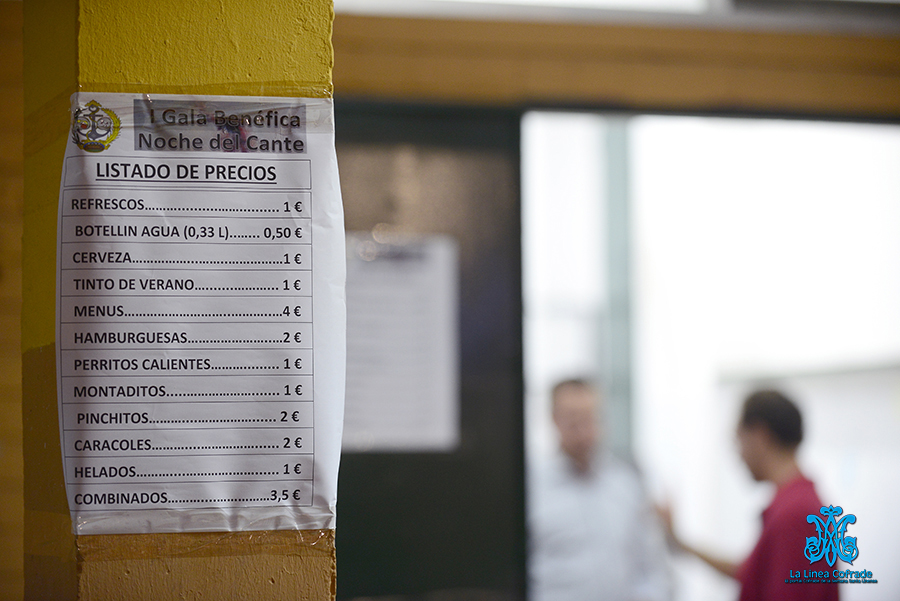 I Gala Benéfica
Noche del Cante
LISTADO DE PRECIOS
REFRESCOS.............................. 1 €
BOTELLIN AGUA (0,33 L)........ 0,50 €
CERVEZA....................................1 €
TINTO DE VERANO.................... 1 €
MENUS.....................................4 €
HAMBURGUESAS.......................2 €
PERRITOS CALIENTES................. 1 €
MONTADITOS........................... 1 €
PINCHITOS.............................. 2 €
CARACOLES.............................. 2 €
HELADOS.................................. 1 €
COMBINADOS........................3,5 €
La Linea Cofrade